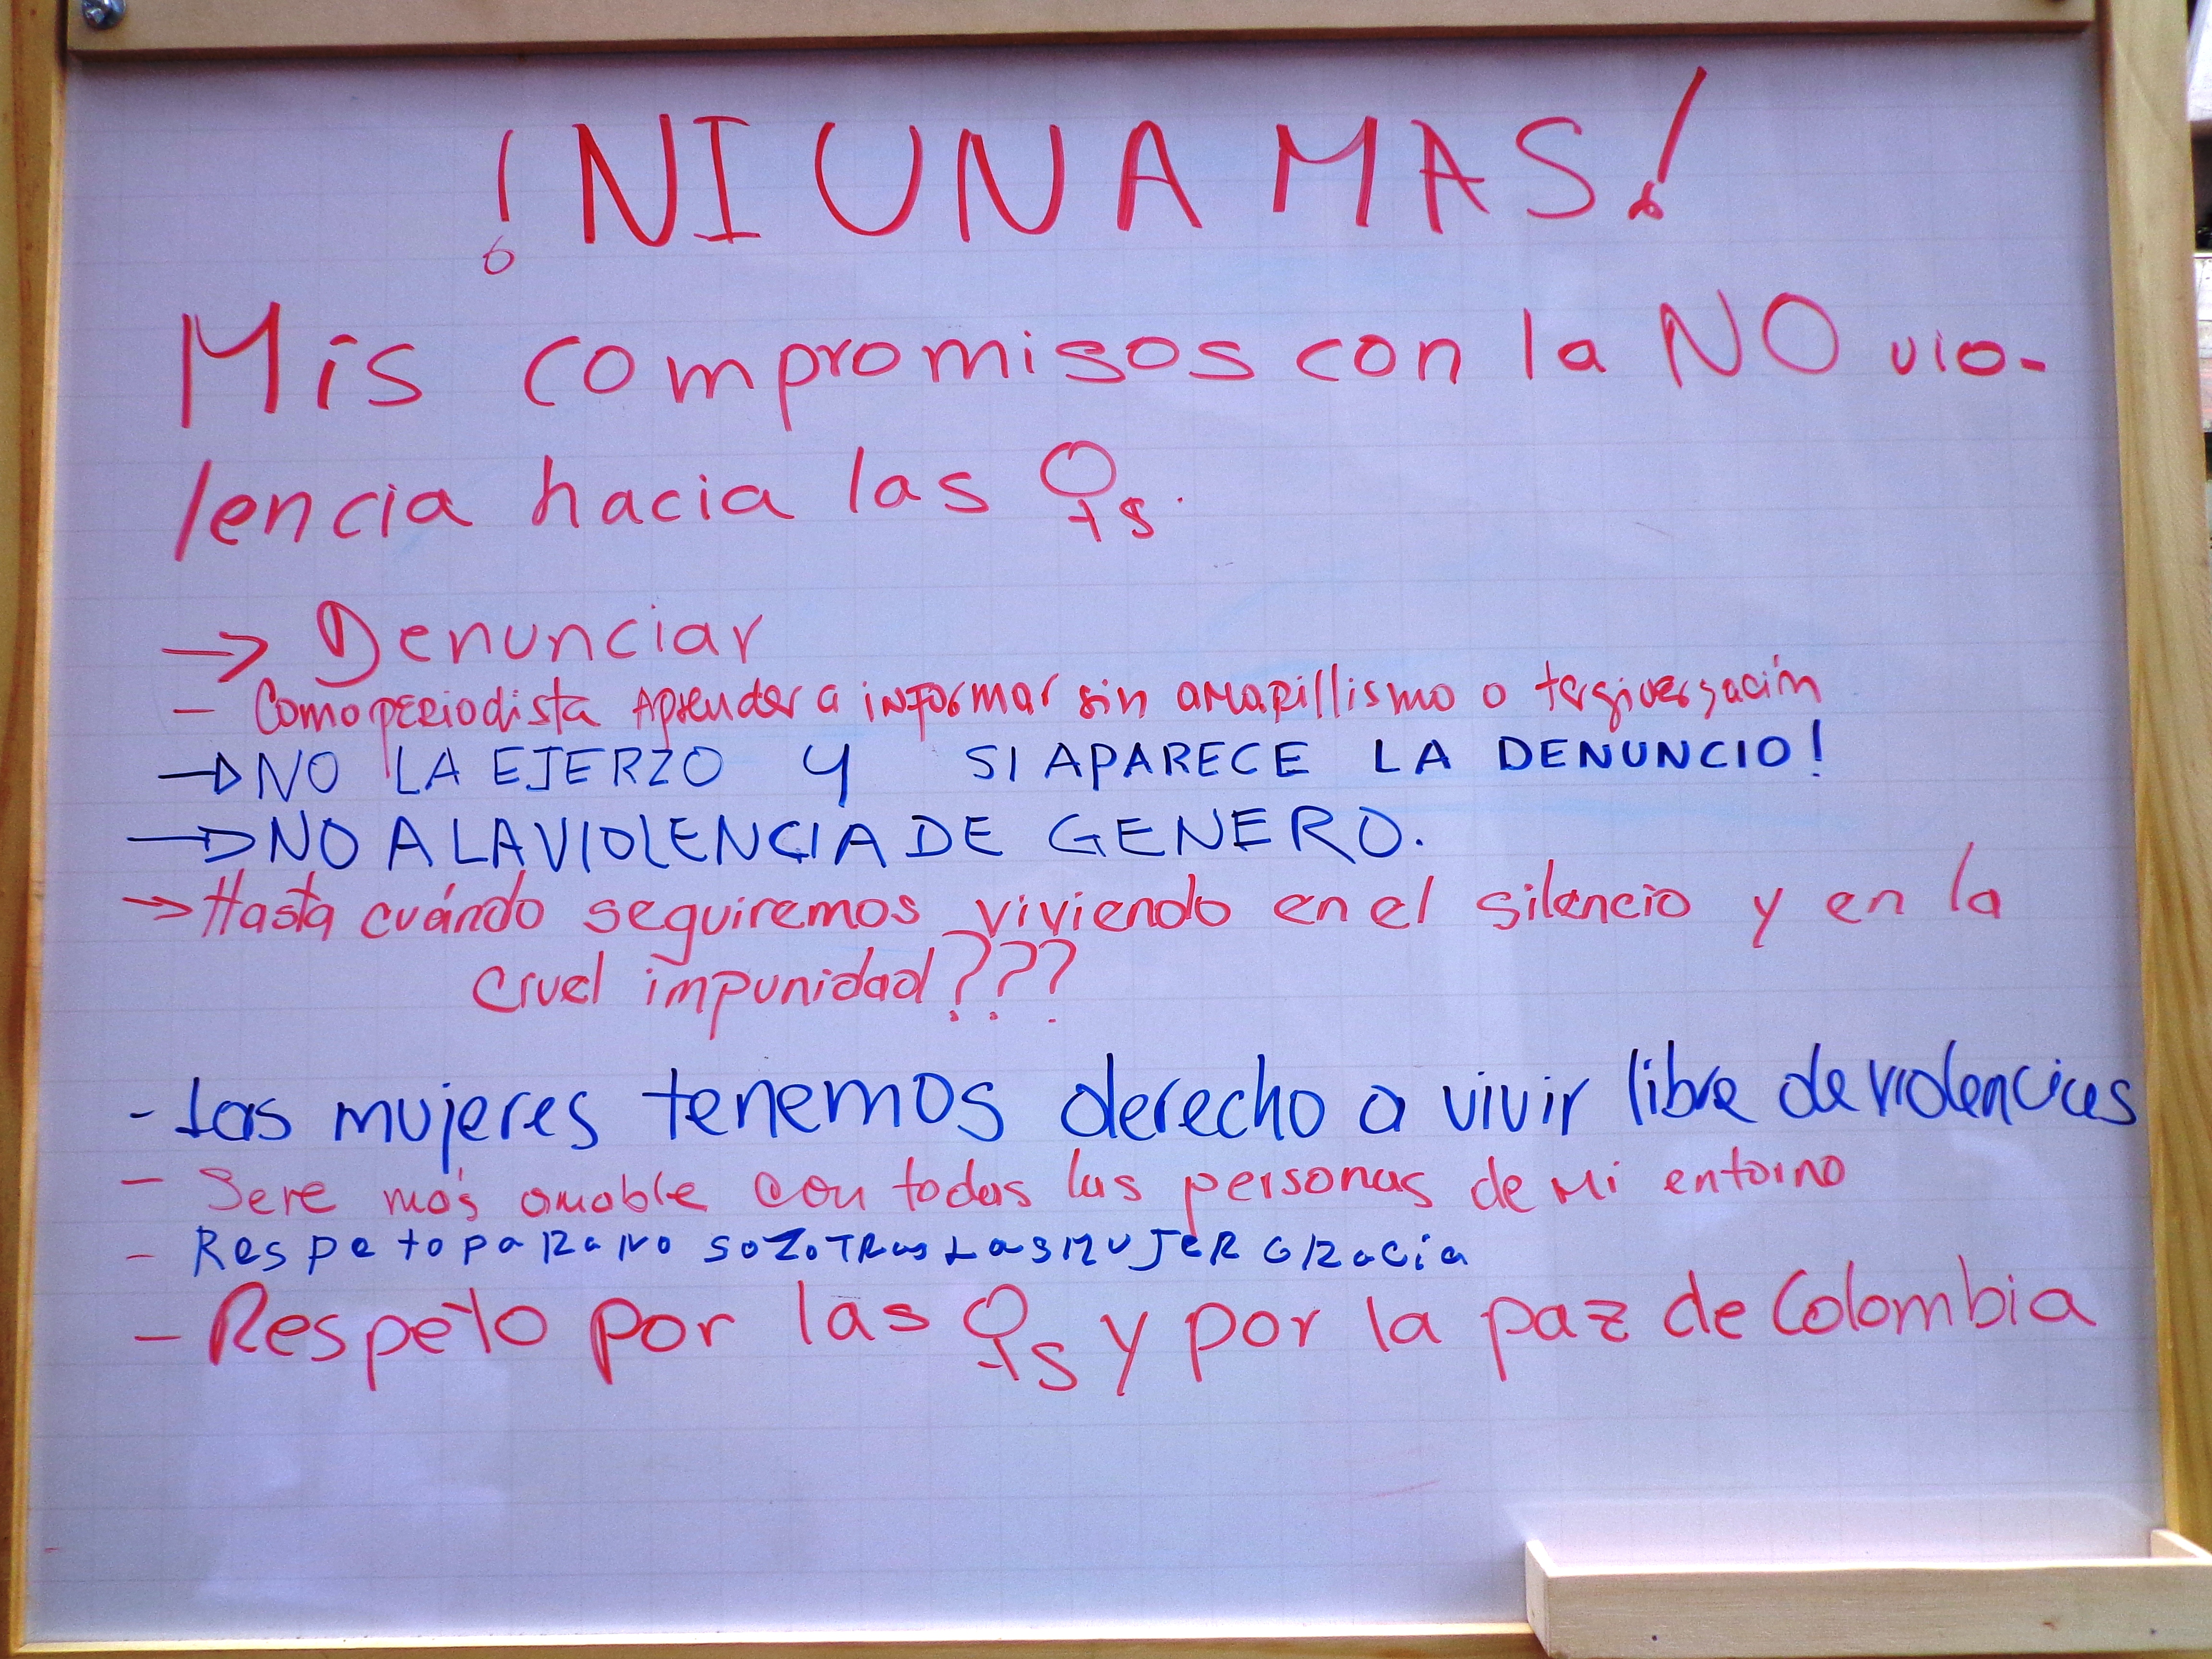 ¡NI UNA MAS!
Mis compromisos con la NO vio-
lencia hacia las ♀s.
→ Denunciar
- Como periodista Aprender a informar sin amarillismo o tergiversación
→ NO LA EJERZO Y SI APARECE LA DENUNCIO!
→ NO A LA VIOLENCIA DE GENERO.
→ Hasta cuándo seguiremos viviendo en el silencio y en la
cruel impunidad???
- Las mujeres tenemos derecho a vivir libre de violencias
- Sere más amable con todas las personas de mi entorno
- Respeto para nosozotras Las MUJER GRacia
- Respeto por las ♀s y por la paz de Colombia